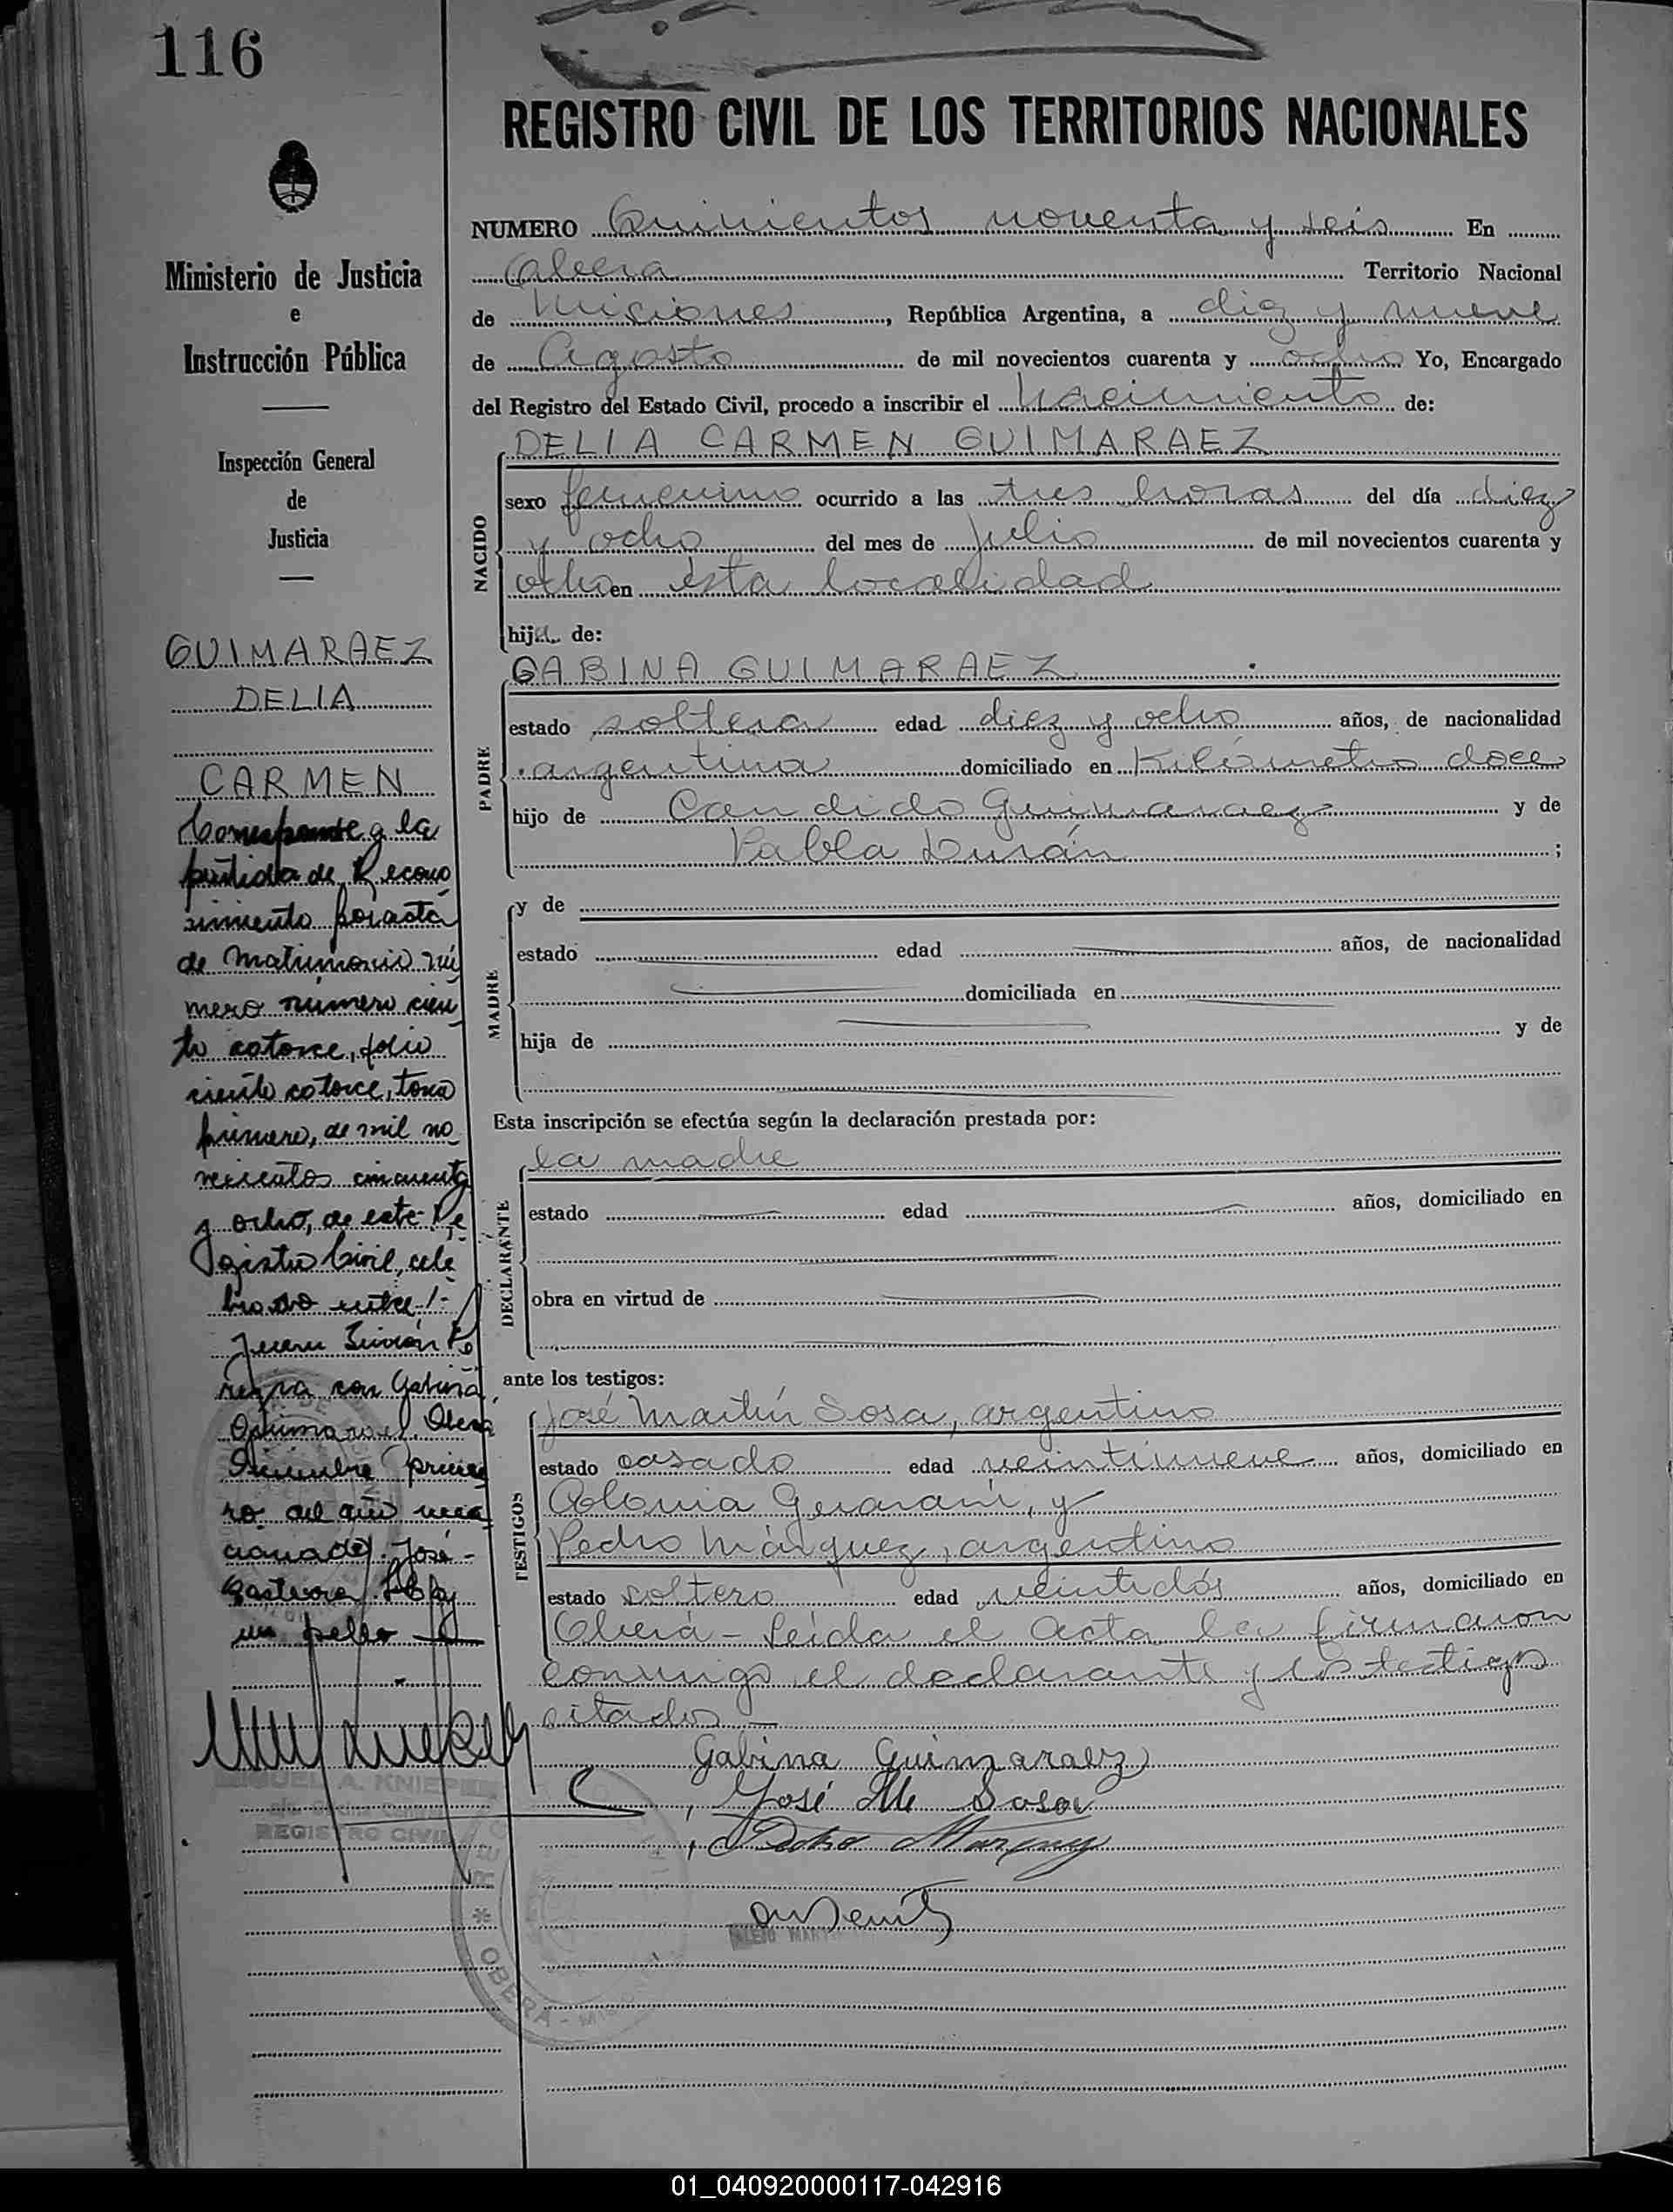 116
REGISTRO CIVIL DE LOS TERRITORIOS NACIONALES
Ministerio de Justicia
e
Instrucción Pública
Inspección General
de
Justicia
GUIMARAEZ
DELIA
CARMEN
Corresponde a la
partida de Recono
cimiento por acta
de Matrimonio nú
mero número cien
to catorce, folio
ciento catorce, tomo
primero, de mil no
vecientos cincuenta
y ocho, de este Re
gistro Civil, cele
brado entre!-
Simón
con Gabina
Guimaraez. Oberá
Diciembre prime
ro del año men
cionado. José
un sello
MIGUEL A. KNIE
REGISTRO CIVIL
NUMERO Quinientos noventa y seis En
Oberá Territorio Nacional
de Misiones, República Argentina, a diez y nueve
de Agosto de mil novecientos cuarenta y ocho Yo, Encargado
del Registro del Estado Civil, procedo a inscribir el Nacimiento de:
NACIDO
DELIA CARMEN GUIMARAEZ
sexo femenino ocurrido a las tres horas del día diez
y ocho del mes de Julio de mil novecientos cuarenta y
ocho en ésta localidad
hija de:
PADRE
GABINA GUIMARAEZ
estado soltera edad diez y ocho años, de nacionalidad
argentina domiciliado en Kilómetro doce
hijo de Candido Guimaraez y de
Pabla Durán;
MADRE
y de
estado edad años, de nacionalidad
domiciliada en
hija de y de
Esta inscripción se efectúa según la declaración prestada por:
DECLARANTE
la madre
estado edad años, domiciliado en
obra en virtud de
ante los testigos:
TESTIGOS
José Martín Sosa, argentino
estado casado edad veintinueve años, domiciliado en
Colonia Guaraní, y
Pedro Márquez, argentino
estado soltero edad veintidós años, domiciliado en
Oberá - Leída el acta la firmaron
conmigo el declarante y los testigos
citados
Gabina Guimaraez
José M Sosa
Pedro Marquez
OBERÁ - MISIONES
01_040920000117-042916